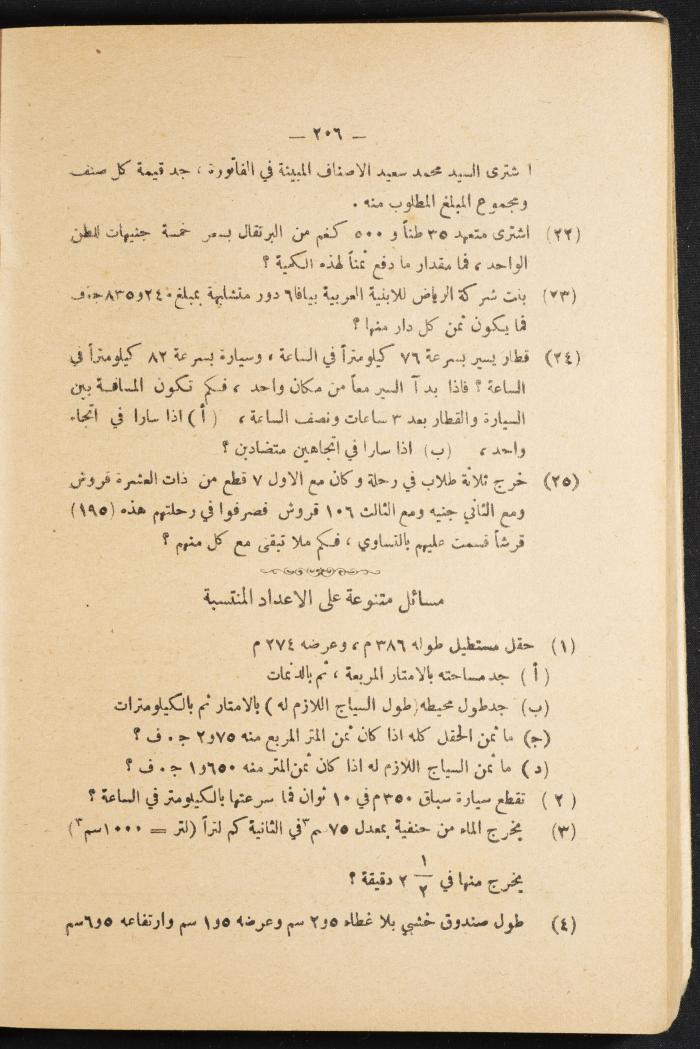 — ٢٠٦ —
اشترى السيد محمد سعيد الاصناف المبينة في الفاتورة ، جد قيمة كل صنف
ومجموع المبلغ المطلوب منه .
(٢٢) اشترى متعهد ٣٥ طناً و ٥٠٠ كغم من البرتقال بسعر خمسة جنيهات للطن
الواحد ، فما مقدار ما دفع ثمناً لهذه الكمية ؟
(٢٣) بنت شركة الرياض للابنية العربية بيافا ٦ دور متشابهة بمبلغ ٢٤٠و٨٣٥ ج٠ف
فما يكون ثمن كل دار منها ؟
(٢٤) قطار يسير بسرعة ٧٦ كيلومتراً في الساعة ، وسيارة بسرعة ٨٢ كيلومتراً في
الساعة ؟ فاذا بدآ السير معاً من مكان واحد ، فكم تكون المسافة بين
السيارة والقطار بعد ٣ ساعات ونصف الساعة ، (أ) اذا سارا في اتجاه
واحد ، (ب) اذا سارا في اتجاهين متضادين ؟
(٢٥) خرج ثلاثة طلاب في رحلة وكان مع الاول ٧ قطع من ذات العشرة قروش
ومع الثاني جنيه ومع الثالث ١٠٦ قروش فصرفوا في رحلتهم هذه (١٩٥)
قرشاً قسمت عليهم بالتساوي ، فكم ملا تبقى مع كل منهم ؟
مسائل متنوعة على الاعداد المنتسبة
(١) حقل مستطيل طوله ٣٨٦ م ، وعرضه ٢٧٤ م
(أ) جد مساحته بالامتار المربعة ، ثم بالدنمات
(ب) جد طول محيطه (طول السياج اللازم له) بالامتار ثم بالكيلومترات
(ج) ما ثمن الحقل كله اذا كان ثمن المتر المربع منه ٧٥و٢ ج ٠ ف ؟
(د) ما ثمن السياج اللازم له اذا كان ثمن المتر منه ٦٥٠و١ ج ٠ ف ؟
(٢) تقطع سيارة سباق ٣٥٠ م في ١٠ ثوان فما سرعتها بالكيلومتر في الساعة ؟
(٣) يخرج الماء من حنفية بمعدل ٧٥ سم٣ في الثانية كم لتراً (لتر = ١٠٠٠ سم٣)
يخرج منها في ١/٢ ٢ دقيقة ؟
(٤) طول صندوق خشبي بلا غطاء ٥و٢ سم وعرضه ٥و١ سم وارتفاعه ٥و٦ سم